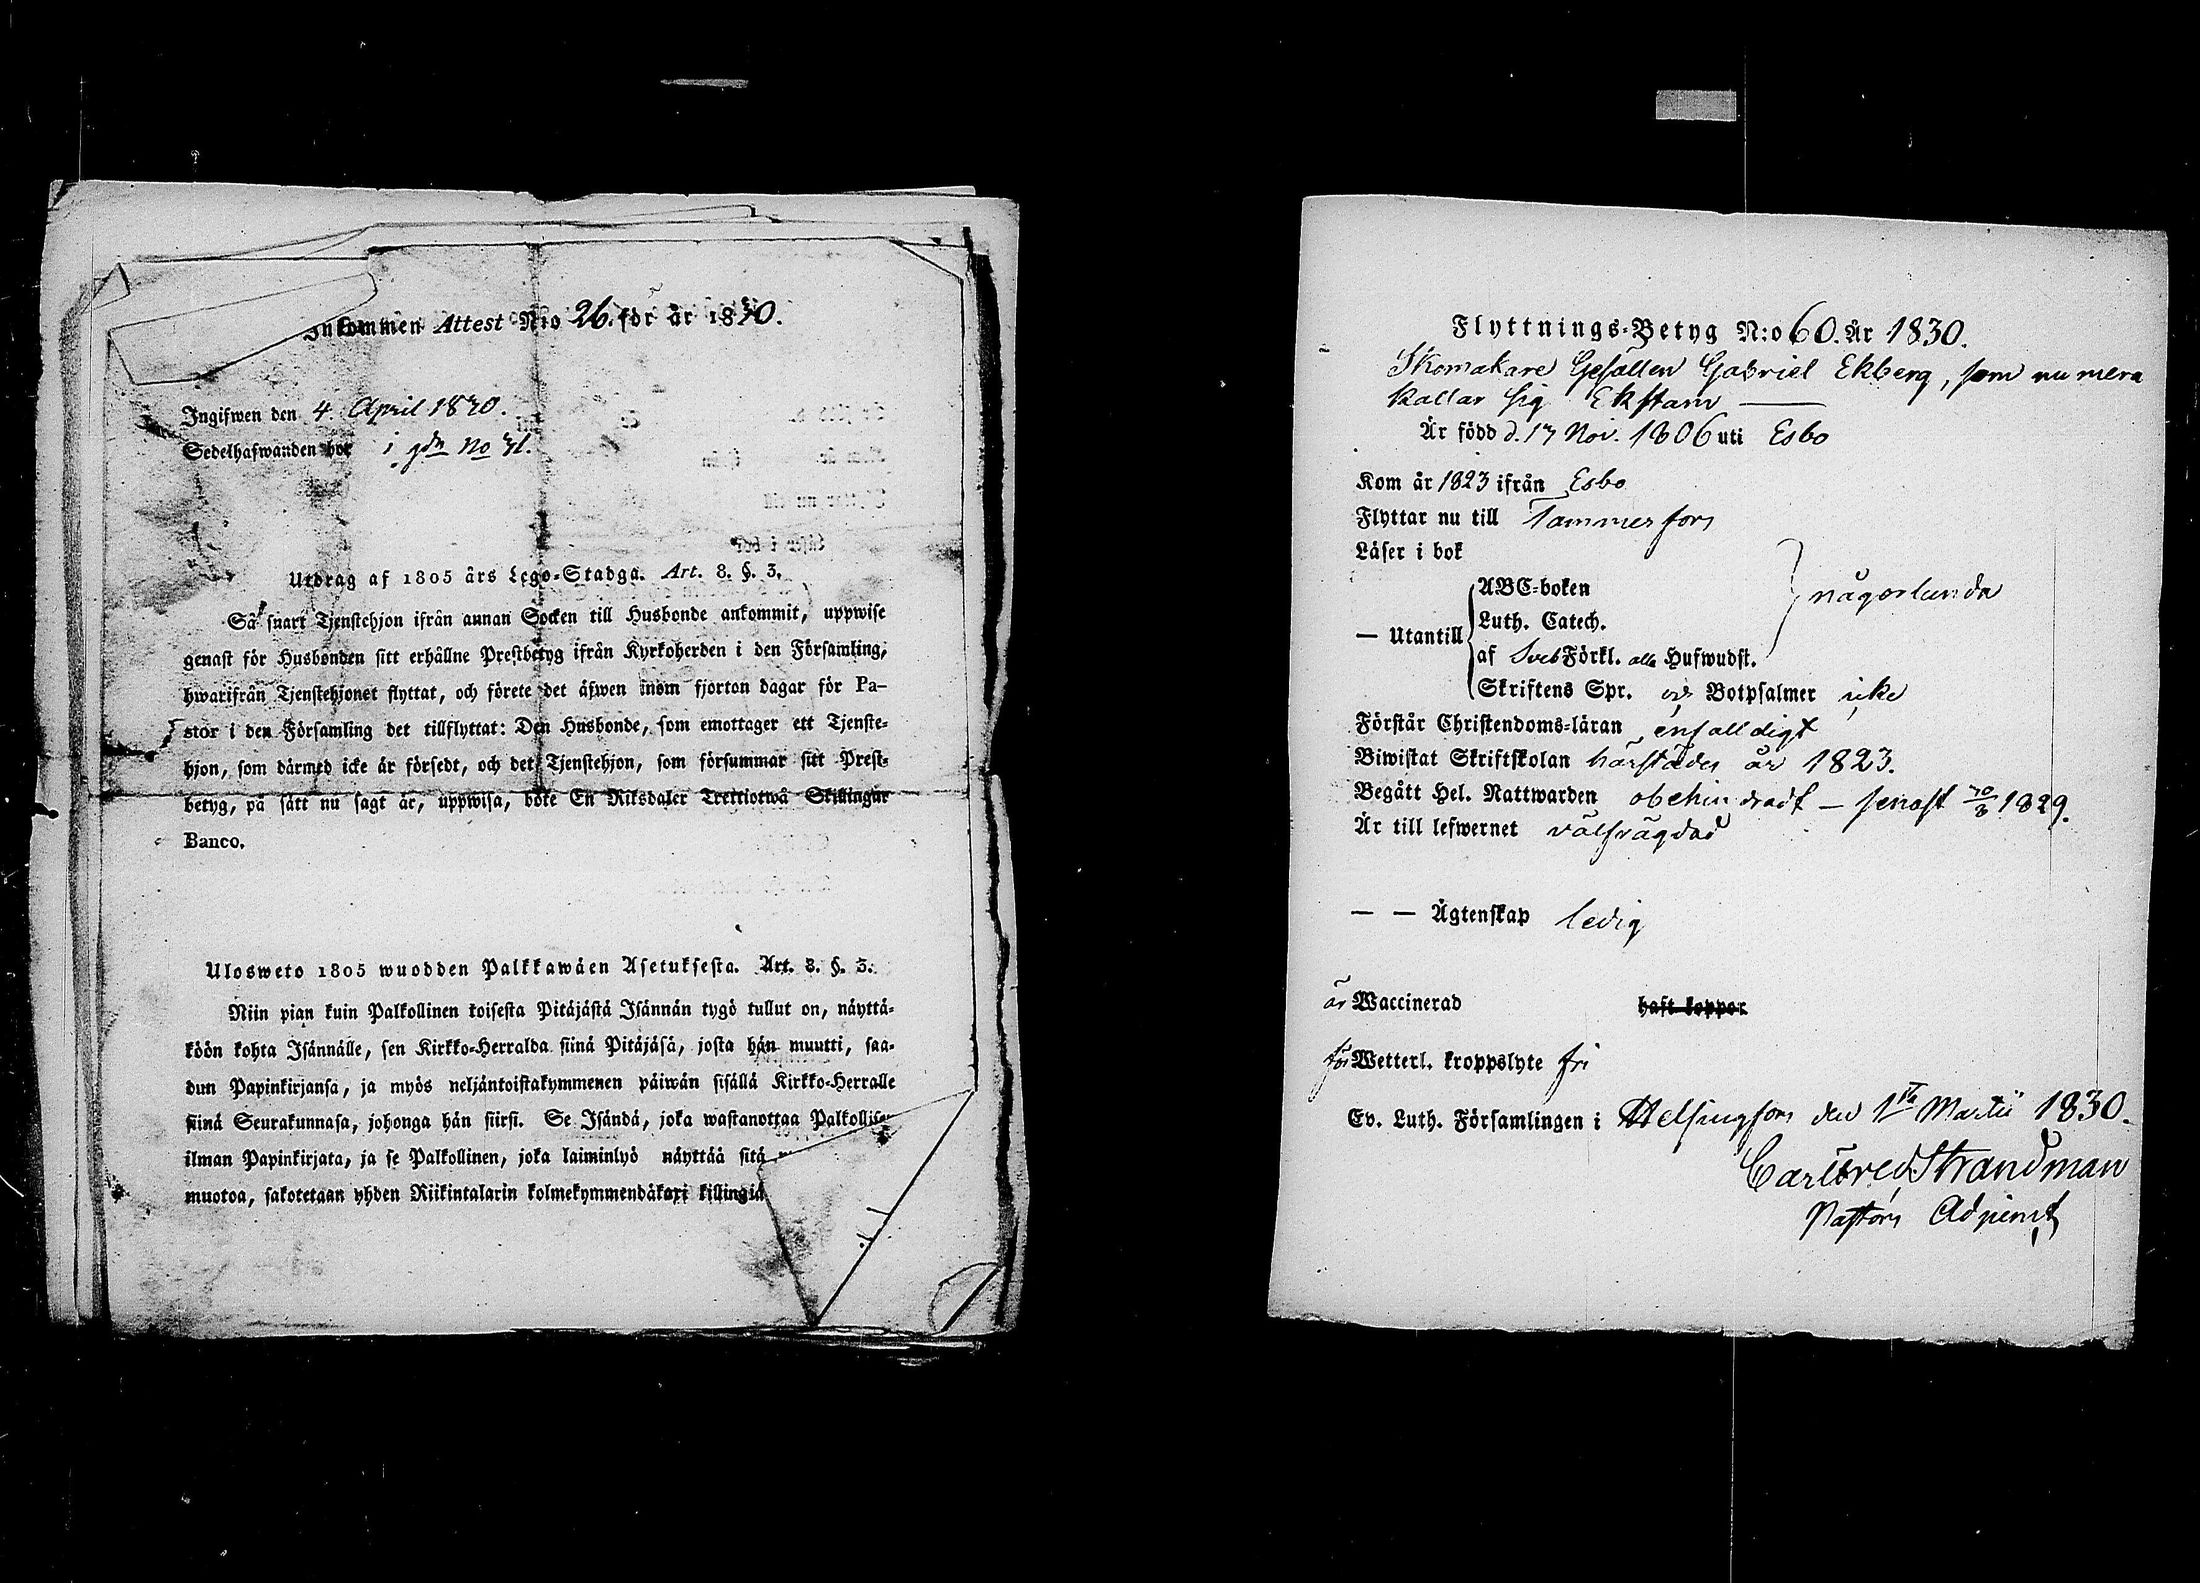 Inkommen Attest N:o 26. för år 1830.
Ingifwen den 4 April 1830.
Sedelhafwanden bor i gdn No 71.
Utdrag af 1805 års Lego-Stadga. Art. 8. §. 3.
Så snart Tjenstehjon ifrån annan Socken till Husbonde ankommit, uppwise
genast för Husbonden sitt erhållne Prestbetyg ifrån Kyrkoherden i den Församling,
hwarifrån Tjenstehjonet flyttat, och förete det äfwen inom fjorton dagar för Pa-
stor i den Församling det tillflyttat: Den Husbonde, som emottager ett Tjenste-
hjon, som därmed icke är försedt, och det Tjenstehjon, som försummar sitt Prest-
betyg, på sätt nu sagt är, uppwisa, böte En Riksdaler Trettiotwå Skillingar
Banco.
Ulosweto 1805 wuodden Palkkawäen Asetuksesta. Art. 8. §. 3.
Niin pian kuin Palkollinen toisesta Pitäjästä Isännän tygö tullut on, näyttä-
köön kohta Isännälle, sen Kirkko-Herralda siinä Pitäjäsä, josta hän muutti, saa-
dun Papinkirjansa, ja myös neljäntoistakymmenen päiwän sisällä Kirkko-Herralle
siinä Seurakunnasa, johonga hän siirsi. Se Isändä, joka wastanottaa Palkollisen
ilman Papinkirjata, ja se Palkollinen, joka laiminlyö näyttää sitä
muotoa, sakotetaan yhden Riikintalarin kolmekymmendäkaxi killingiä
Flyttnings-Betyg N:o 60. År 1830.
Skomakare Gesällen Gabriel Ekberg, som nu mera
kallar sig Ekstam
Är född d. 17 Nov. 1806 uti Esbo
Kom år 1823 ifrån Esbo
Flyttar nu till Tammerfors
Läser i bok
ABC-boken
någorlunda
Luth. Catech.
— Utantill
af Sveb Förkl. alla Hufwudst.
Skriftens Spr. och Botpsalmer icke
Förstår Christendoms-läran enfalldigt
Biwistat Skriftskolan härstädes år 1823.
Begått Hel. Nattwarden obehindradt — senast 1829.
Är till lefwernet välfrägdad
— — Ägtenskap ledig
är Waccinerad haft koppor
för Wetterl. kroppslyte fri
Ev. Luth. Församlingen i Helsingfors den 1sta Martii 1830.
Strandman
Pastors Adjunct